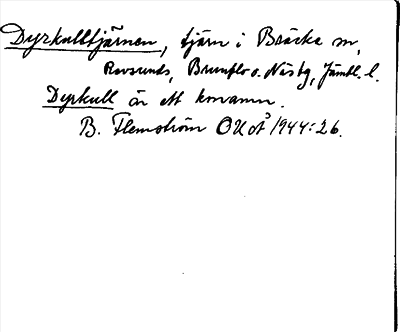 Dyrkulltjärnen, tjärn i Bräcke sn,
Revsunds, Brunflo o. Näs tg, Jämtl. l.
Dyrkull är ett konamn.
B. Flemström OUÅ 1944:26.